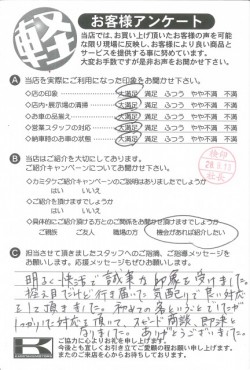 軽
お客様アンケート
当店では、お買い上げ頂いたお客様の声を可能
な限り現場に反映し、お客様により良い商品と
サービスを提供する事に努めています。
大変お手数ですが是非お声をお聞かせ下さい。
A 当店を実際にご利用になった印象をお聞かせ下さい。
◇店の印象 大満足 満足 ふつう やや不満 不満
◇店内・展示場の清掃 大満足 満足 ふつう やや不満 不満
◇お車の品揃え 大満足 満足 ふつう やや不満 不満
◇営業スタッフの対応 大満足 満足 ふつう やや不満 不満
◇納車時のお車の状態 大満足 満足 ふつう やや不満 不満
B 当店はご紹介を大切にしております。
ご紹介キャンペーンについてお聞かせ下さい。
◇カミタケご紹介キャンペーンのご説明はありましたでしょうか
はい いいえ
◇ご紹介を頂けますでしょうか
はい いいえ
◇具体的にご紹介頂ける方とのご関係をお聞かせ頂けますでしょうか
ご親族 ご友人 職場の方 機会があれば紹介したい
C 担当させて頂きましたスタッフへのご指摘、ご指導メッセージを
お願いします。応援メッセージもぜひお願いします。
明るく快活で誠実な印象を受けました。
控え目だけど行き届いた気配りで良い対応
をして頂きました。初めての名
しっかりした対応を頂いて、スピード商談、即決と
なりました。ありがとうございました。
K
ご協力に心よりお礼を申し上げます。
今後とも宜しくお引き立てご愛顧の程お願い申し上げます。
またのご来店を心からお待ちしております。